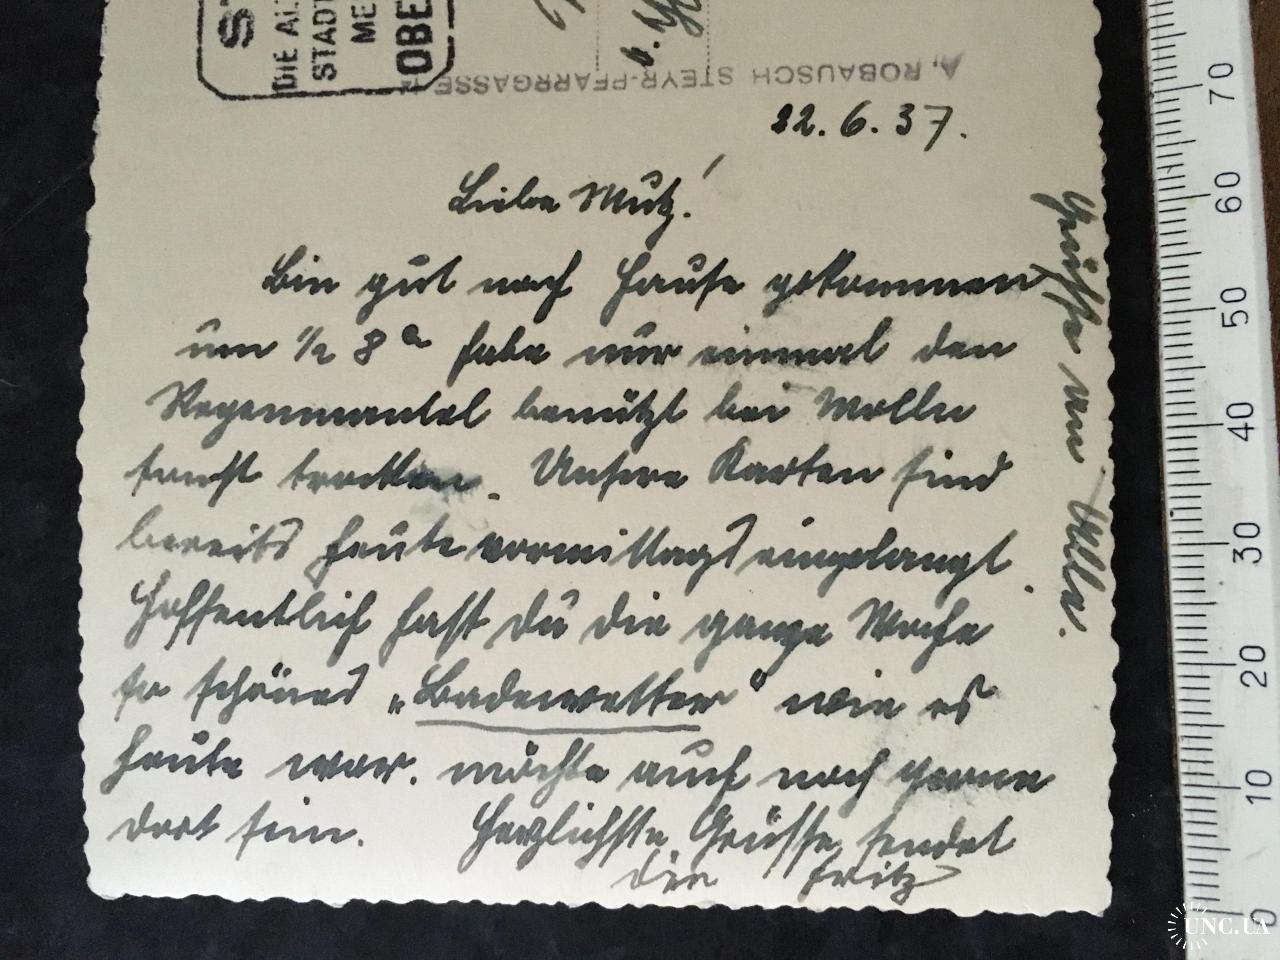 S
DIE AL
STADT
ME
OBE
A. ROBAUSCH STEYR-PFARRGASSE
22. 6. 37.
Liebe Mutz!
Bin gut nach Hause gekommen
um 1/2 8 habe nur einmal den
Regenmantel benützt bei Molln
sonst trocken. Unsere Karten sind
bereits heute vormittags eingelangt.
Hoffentlich hast Du die ganze Woche
so schönes „Badewetter" wie es
heute war. möchte auch noch gerne
dort sein. Herzlichste Grüsse sendet
dir Fritz
Grüsse von
70
60
50
40
30
20
10
0
UNC.UA